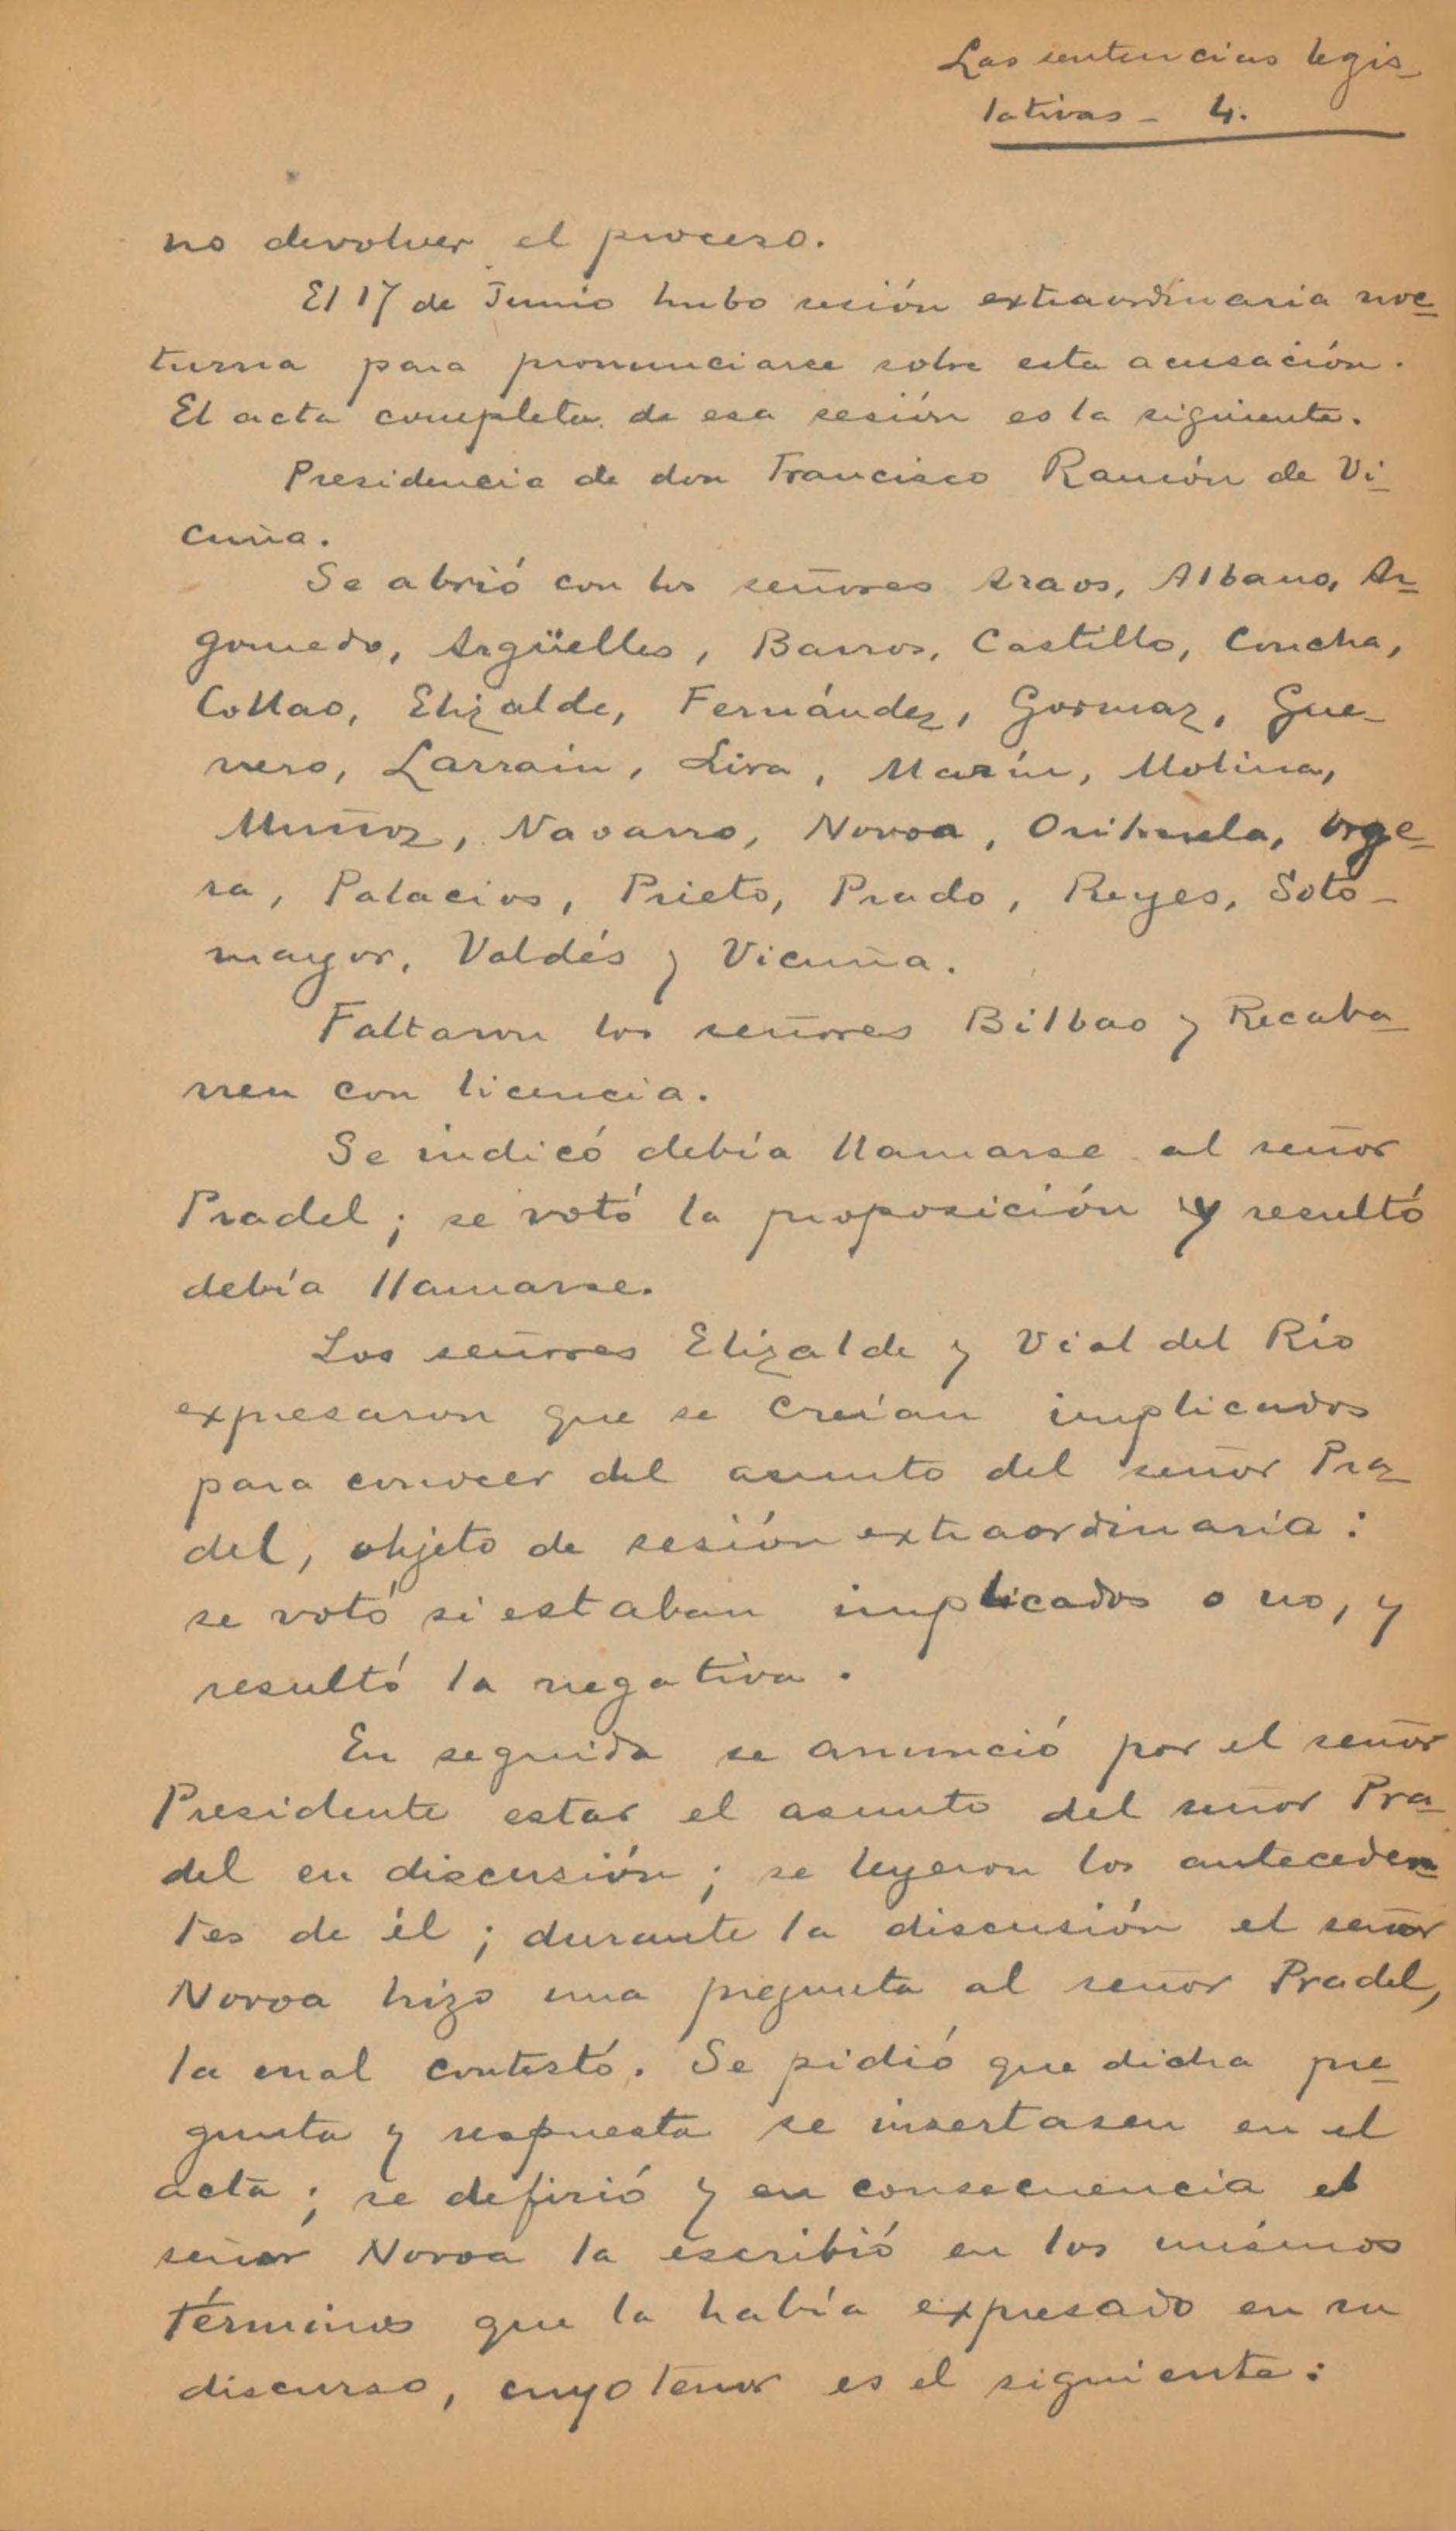 Las sentencias legis-
lativas - 4.
no devolver el proceso.
El 17 de Junio hubo sesión extraordinaria noc-
turna para pronunciarse sobre esta acusación.
El acta completa de esa sesión es la siguiente.
Presidencia de don Francisco Ramón de Vi-
cuña.
Se abrió con los señores Araos, Albano, Ar-
gomedo, Argüelles, Barros, Castillo, Concha,
Collao, Elizalde, Fernández, Gormaz, Gue-
rrero, Larraín, Lira, Marín, Molina,
Muñoz, Navarro, Novoa, Orihuela, Orge-
ra, Palacios, Prieto, Prado, Reyes, Soto-
mayor, Valdés y Vicuña.
Faltaron los señores Bilbao y Recaba-
rren con licencia.
Se indicó debía llamarse al señor
Pradel; se votó la proposición y resultó
debía llamarse.
Los señores Elizalde y Vial del Río
expresaron que se creían implicados
para conocer del asunto del señor Pra-
del, objeto de sesión extraordinaria:
se votó si estaban implicados o no, y
resultó la negativa.
En seguida se anunció por el señor
Presidente estar el asunto del señor Pra-
del en discusión; se leyeron los anteceden-
tes de él; durante la discusión el señor
Novoa hizo una pregunta al señor Pradel,
la cual contestó. Se pidió que dicha pre-
gunta y respuesta se insertasen en el
acta; se defirió y en consecuencia el
señor Novoa la escribió en los mismos
términos que la había expresado en su
discurso, cuyo tenor es el siguiente: